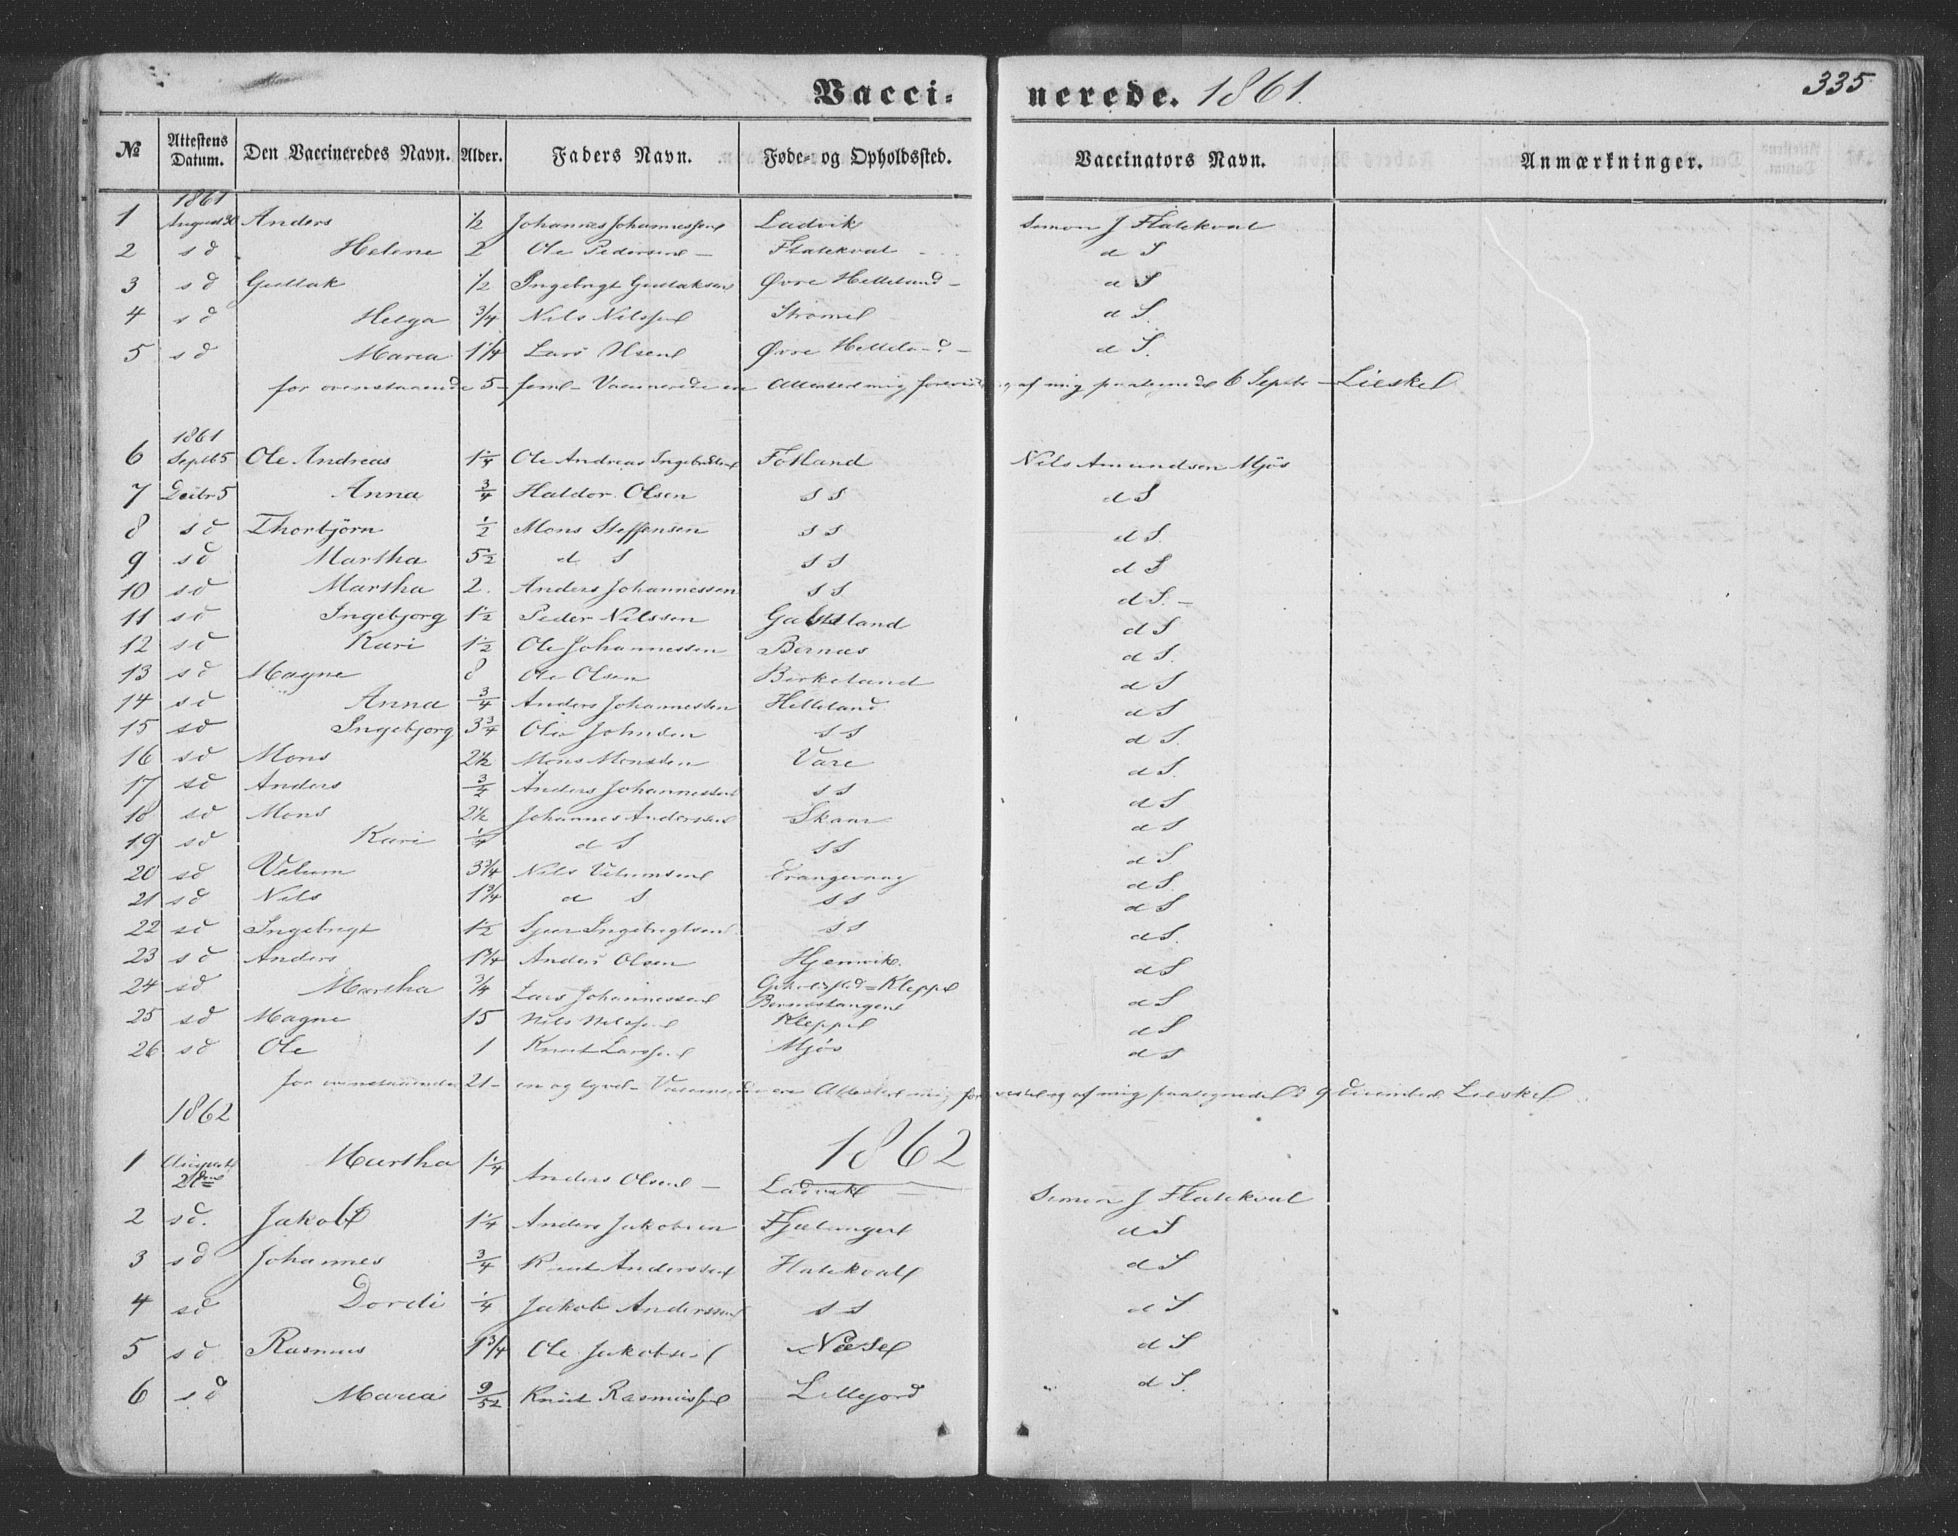 Vaccinerede. 1861. 335
№ Attestens Datum. Den Vaccineredes Navn. Alder. Faders Navn. Føde- og Opholdssted. Vaccinators Navn. Anmærkninger.
1861
1 August Anders 1/2 Johannes Johannessen Ladvik Simon J Flatekval
2 sd Helene 2 Ole Pedersen - Flatekval d S
3 sd Gullak 1/2 Ingebrigt Gullaksen Øvre Helleland - d S
4 sd Helga 3/4 Nils Nilssen Strømel d S.
5 sd Maria 1 1/4 Lars Øvre Helleland - d S.
for ovenstaaende 5 - fem - Vaccinerede er af mig 6 Septr -
1861
6 Septb 5 Ole Andreas 1 1/4 Ole Andreas Fotland Nils Amundsen Mjøs
7 Decbr 5 Anna 3/4 Haldor Olsen s s d S
8 sd Thorbjörn 1/2 Mons Steffensen s s d S.
9 sd Martha 5 1/2 d S s s d S
10 sd Martha 2. Anders Johannessen s s d S. -
11 sd Ingebjorg 1 1/2 Peder Nilssen d S
12 sd Kari 1 1/2 Ole Johannessen Bernas d S.
13 sd Magne 8 Ole Olsen Birkeland d S
14 sd Anna 3/4 Anders Johannessen Helleland d S
15 sd Ingebjorg 3 3/4 Ole Johnsen s s d S.
16 sd Mons 2 1/2 Mons Monsen Vare d S.
17 sd Anders 3/4 Anders Johannessen s s d S
18 sd Mons 2 1/2 Johannes Anderssen Skaar d S
19 sd Kari 1/4 d S s s d S
20 sd Velum 3 3/4 Nils Velumsen d S.
21 sd Nils 1 3/4 d S s s d S
22 sd Ingebrigt 1 1/2 Sjur Ingebrigtsen s s d S.
23 sd Anders 1 3/4 Anders Olsen Hjemvik. d S
24 sd Martha 3/4 Lars Johannessen Kleppe d S
Bernestangen
25 sd Magne 15 Nils Nilssen Kleppe d S
26 sd Ole 1 Knut Larssen Mjøs d S
for ovenstaaende 21 - en og tyve - Vaccinerede ere af mig 9
1862
1862
1 August Martha 1 1/4 Anders Olsen - Ladvik Simon J. Flatekval
2 sd. Jakob 1 1/4 Anders Jakobsen Fjelanger d S
3 sd Johannes 3/4 Knut Anderssen Flatekval d S
4 sd Dordi 1/4 Jakob Anderssen s s d S
5 sd Rasmus 1 3/4 Ole Jakobsen d S
6 sd Maria 9/52 Knut Rasmussen d S.